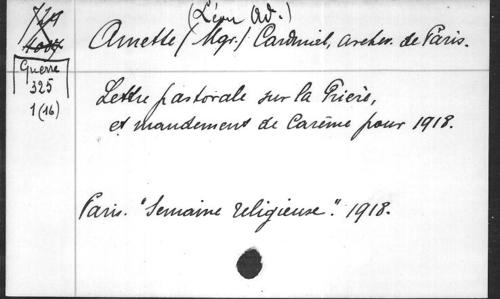 (Léon Ad.)
Amette / Mgr. / Cardinal, archev. de Paris.
Guerre
325
1 (16)
Lettre pastorale sur la Prière,
et mandement de Carême pour 1918.
Paris. "Semaine religieuse". 1918.